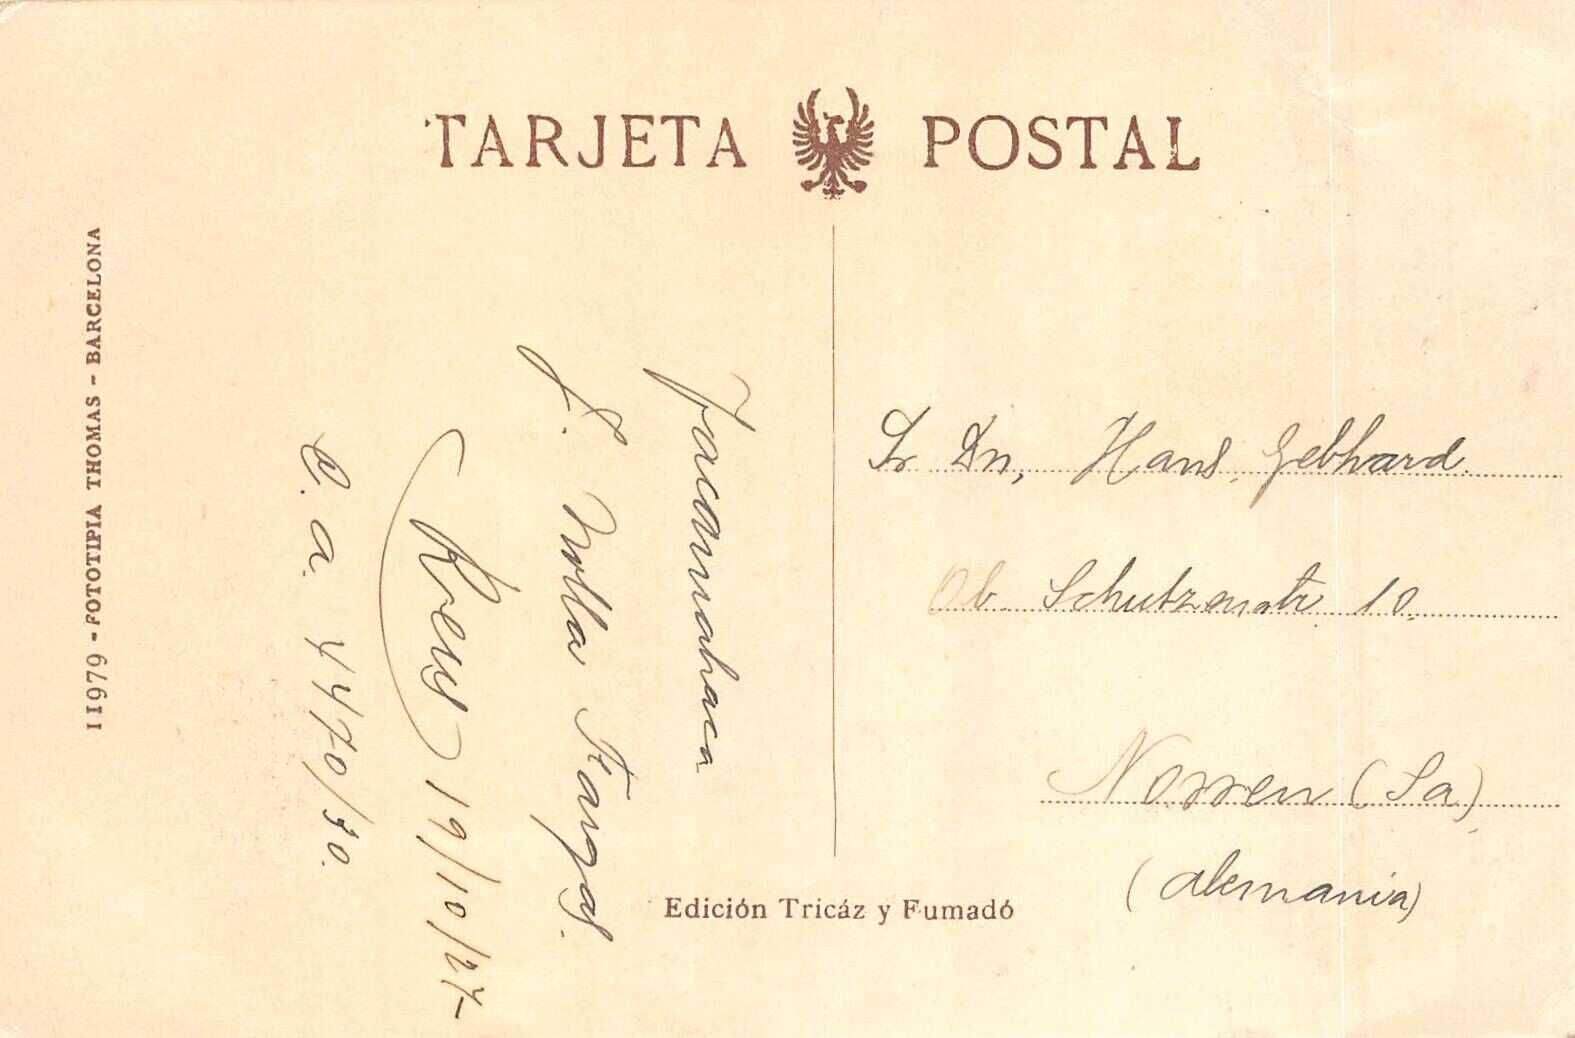 TARJETA POSTAL
11979 - FOTOTIPIA THOMAS - BARCELONA
Jacamahaca
F. Molla Fargas.
(Reus) 19/10/27
C. a. 4470/30.
Sr Dn, Hans, Gebhard.
Ob. Schutzenstr. 10.
Nossen (Sa)
(Alemania)
Edición Tricáz y Fumadó